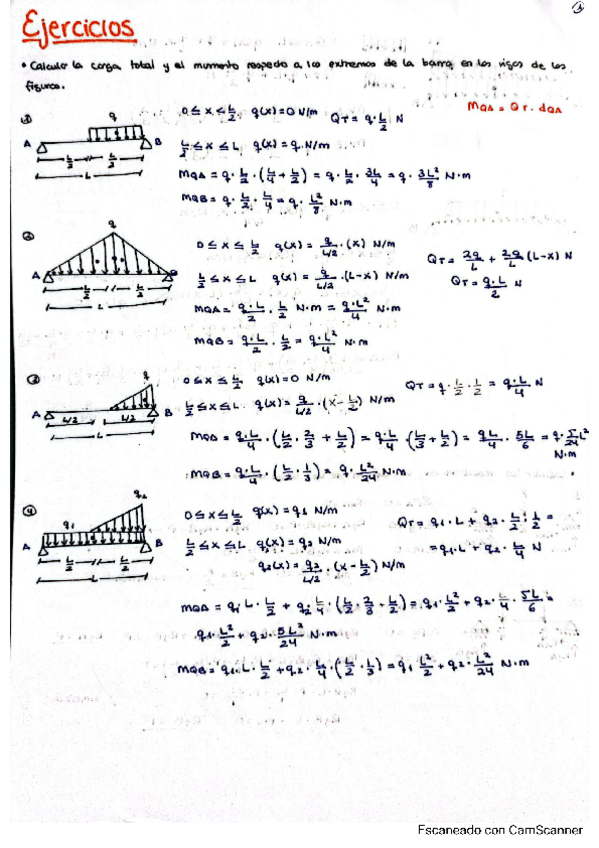 1
Ejercicios
• Calcular la carga total y el momento respecto a los extremos de la barra en las vigas de las
figuras.
MQA = QT · dQA
①
q
A B
L/2 L/2
L
0 ≤ x ≤ L/2 q(x) = 0 N/m QT = q · L/2 N
L/2 ≤ x ≤ L q(x) = q N/m
MQA = q · L/2 · (L/4 + L/2) = q · L/2 · 3L/4 = q · 3L²/8 N·m
MQB = q · L/2 · L/4 = q · L²/8 N·m
②
q
A B
L/2 L/2
L
0 ≤ x ≤ L/2 q(x) = q/L/2 · (x) N/m
L/2 ≤ x ≤ L q(x) = q/L/2 · (L-x) N/m
QT = 2q/L + 2q/L (L-x) N
QT = q·L/2 N
MQA = q·L/2 · L/2 N·m = q·L²/4 N·m
MQB = q·L/2 · L/2 = q·L²/4 N·m
③
q
A B
L/2 L/2
L
0 ≤ x ≤ L/2 q(x) = 0 N/m
QT = q · L/2 · 1/2 = q·L/4 N
L/2 ≤ x ≤ L q(x) = q/L/2 · (x - L/2) N/m
MQA = q·L/4 · (L/2 · 2/3 + L/2) = q·L/4 · (L/3 + L/2) = qL/4 · 5L/6 = q · 5/24 L² N·m
MQB = q·L/4 · (L/2 · 1/3) = q · L²/24 N·m
④
q1 q2
A B
L/2 L/2
L
0 ≤ x ≤ L/2 q(x) = q1 N/m
QT = q1 · L + q2 · L/2 · 1/2 =
= q1·L + q2 · L/4 N
L/2 ≤ x ≤ L q1(x) = q2 N/m
q2(x) = q2/L/2 · (x - L/2) N/m
MQA = q1 · L · L/2 + q2 · L/4 · (L/2 · 2/3 + L/2) = q1 · L²/2 + q2 · L/4 · 5L/6 =
q1 · L²/2 + q2 · 5L²/24 N·m
MQB = q1 · L · L/2 + q2 · L/4 · (L/2 · 1/3) = q1 L²/2 + q2 · L²/24 N·m
Escaneado con CamScanner